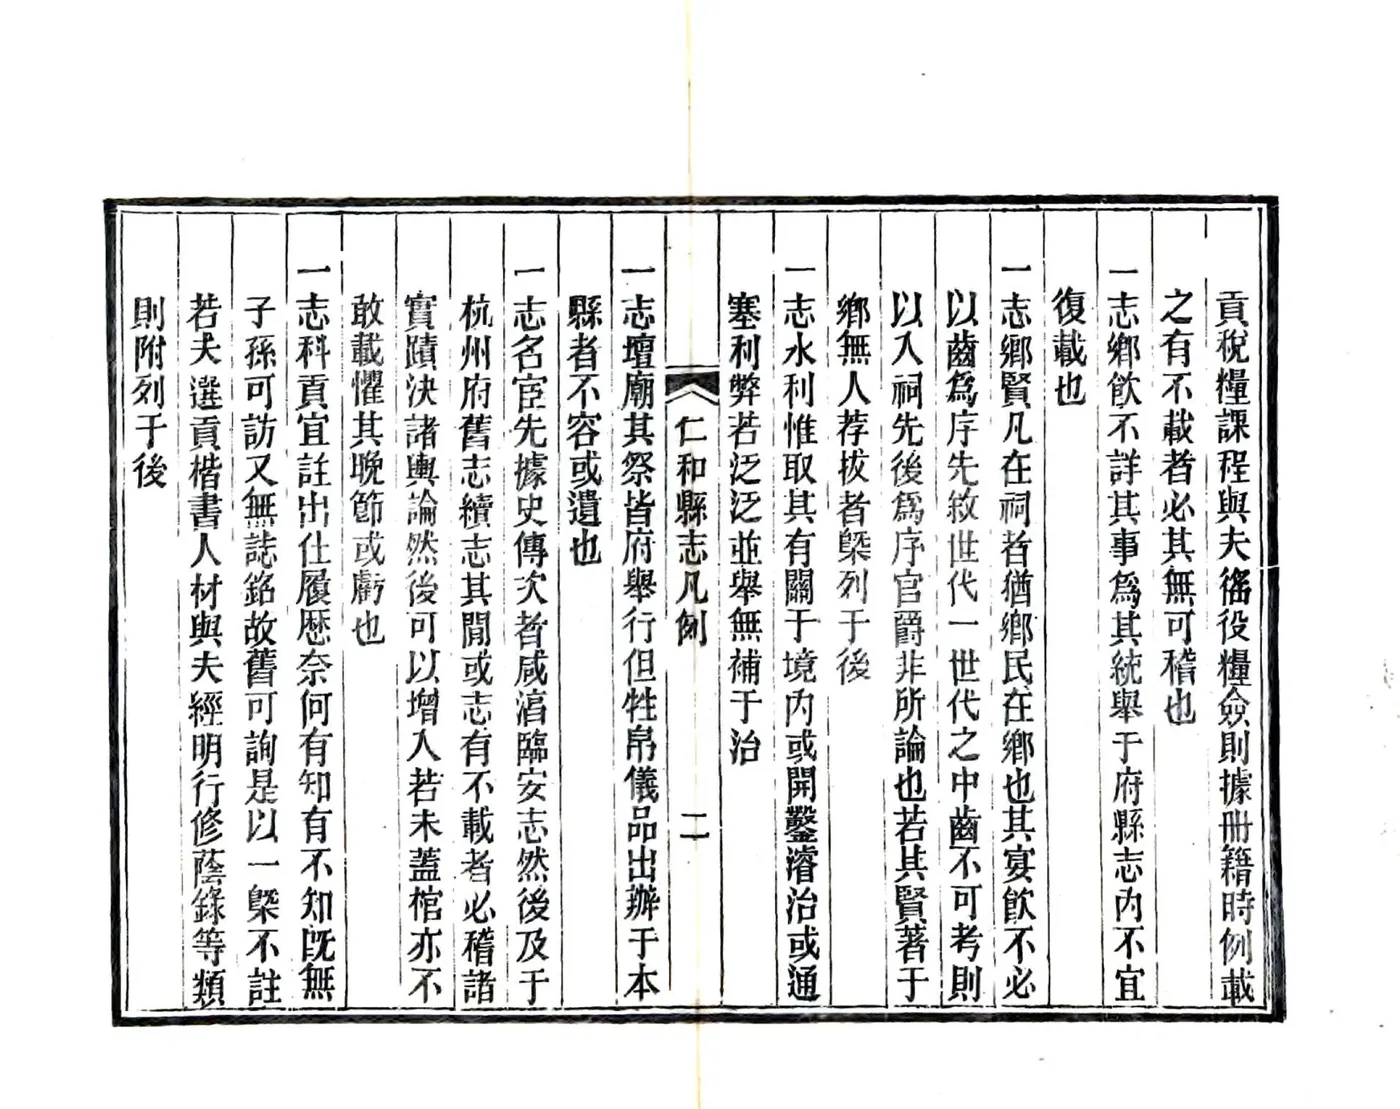 貢稅糧課程與夫徭役糧僉則據冊籍時例載
之有不載者必其無可稽也
一志鄉飮不詳其事爲其統舉于府縣志內不宜
復載也
一志鄉賢凡在祠者猶鄉民在鄉也其宴飮不必
以齒爲序先敘世代一世代之中齒不可考則
以入祠先後爲序官爵非所論也若其賢著于
鄉無人荐拔者槩列于後
一志水利惟取其有關于境內或開鑿濬治或通
塞利弊若泛泛並舉無補于治
仁和縣志凡例
二
一志壇廟其祭皆府舉行但牲帛儀品出辦于本
縣者不容或遺也
一志名宦先據史傳次者咸湻臨安志然後及于
杭州府舊志續志其閒或志有不載者必稽諸
實蹟決諸輿論然後可以增入若未蓋棺亦不
敢載懼其晚節或虧也
一志科貢宜註出仕履歷奈何有知有不知旣無
子孫可訪又無誌銘故舊可詢是以一槩不註
若夫選貢楷書人材與夫經明行修蔭錄等類
則附列于後